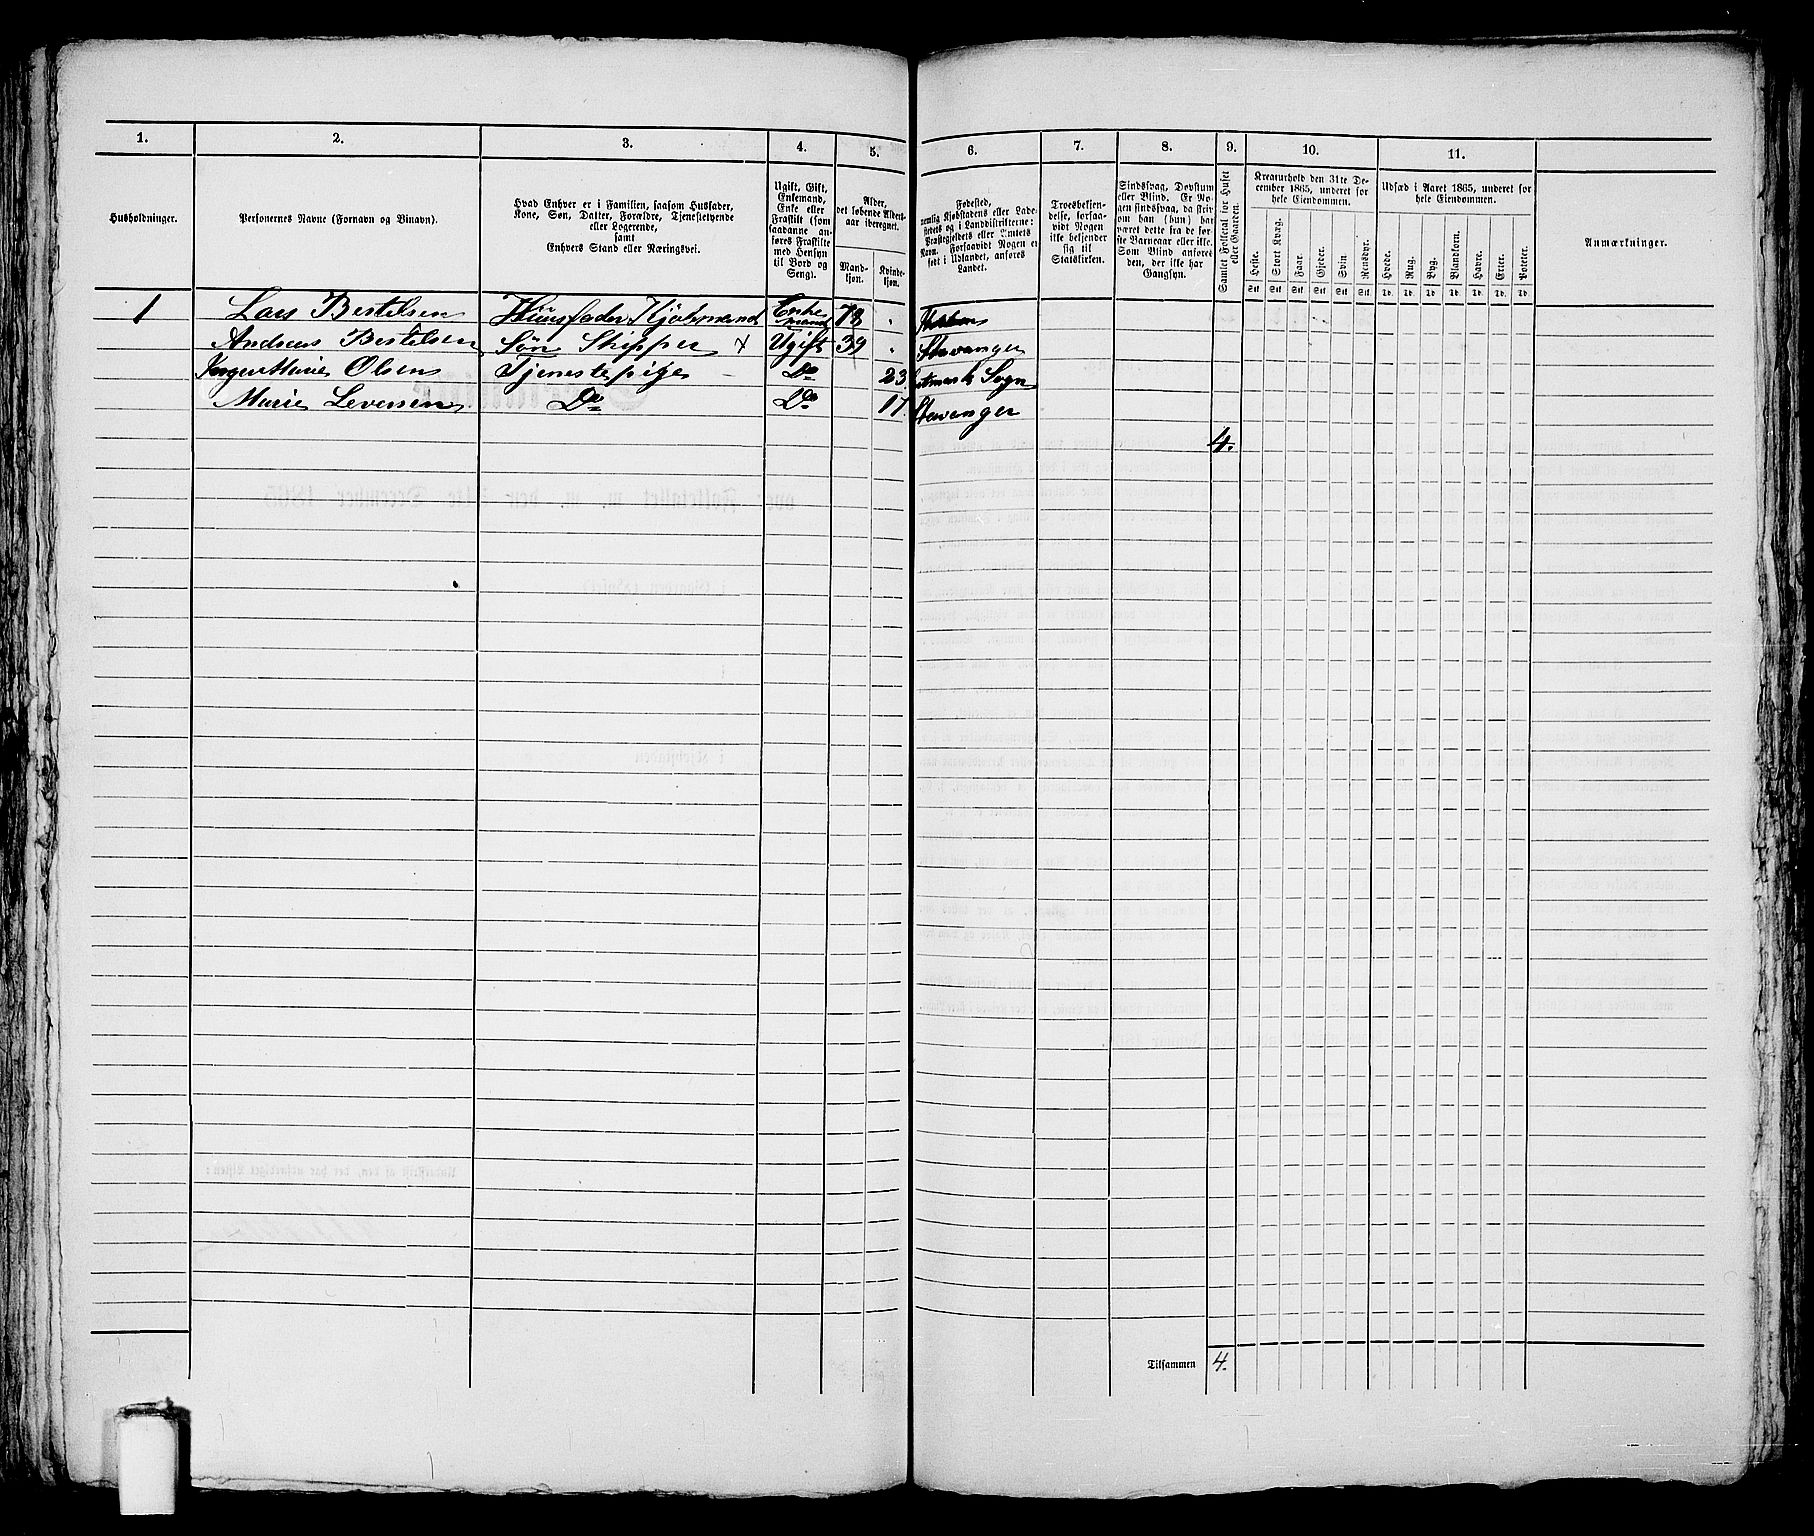 1. 2. 3. 4. 5. 6. 7. 8. 9. 10. 11.
Husholdninger.
Personernes Navne (Fornavn og Binavn).
Hvad Enhver er i Familien, saasom Husfader,
Kone, Søn, Datter, Forældre, Tjenestetyende
eller Logerende,
samt
Enhvers Stand eller Næringsvei.
Ugift, Gift,
Enkemand,
Enke eller
Fraskilt (som
saadanne an-
føres Fraskilte
med Hensyn
til Bord og
Seng).
Alder,
det løbende Alders-
aar iberegnet.
Mand-
kjøn.
Kvinde-
kjøn.
Fødested,
nemlig Kjøbstadens eller Lade-
stedets og i Landdistrikterne:
Præstegjeldets eller Amtets
Navn. Forsaavidt Nogen er
født i Udlandet, anføres
Landet.
Troesbekjen-
delse, forsaa-
vidt Nogen
ikke bekjender
sig til
Statskirken.
Sindssvag, Døvstum
eller Blind. Er No-
gen sindssvag, da skriv
om han (hun) har
været dette fra de før-
ste Barneaar eller ikke.
Som Blind anføres
den, der ikke har
Gangsyn.
Samlet Folketal for Huset
eller Gaarden.
Kreaturhold den 31te De-
cember 1865, underet for
hele Eiendommen.
Heste. Stort Kvæg. Faar. Gjeder. Svin. Rensdyr.
Stk Stk Stk Stk Stk Stk
Udsæd i Aaret 1865, underet for
hele Eiendommen.
Hvede. Rug. Byg. Blandkorn. Havre. Erter. Poteter.
Td. Td. Td. Td. Td. Td. Td.
Anmærkninger.
1 Lars Bertelsen Huusfader Kjøbmand Enke
mand 78
Andreas Bertelsen Søn Skipper x Ugift 39 Stavanger
Olsen Tjenestepige Do 23. Sogn
Marie Do Do 17. Stavanger
4.
Tilsammen 4.